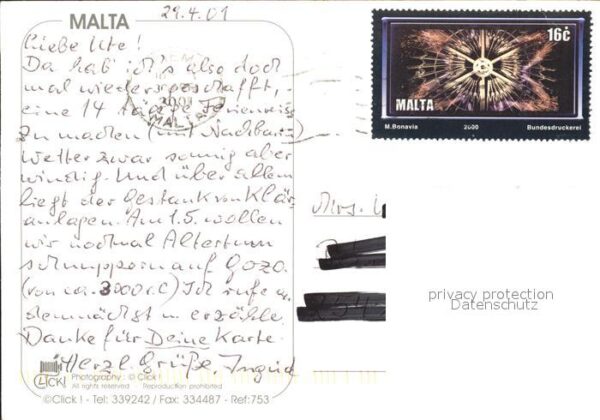 MALTA
29.4.01
16c
MALTA
M. Bonavia 2000 Bundesdruckerei
Liebe Ute!
Da hab' ich's also doch
mal wieder geschafft,
eine 14 tägige Ferienreise
zu machen (im Nachbarz
Wetter zwar sonnig aber
windig. Und über allem
liegt der Gestank von Klär-
anlagen. Am 1.5. wollen
wir nochmal Altertum
schnuppern auf Gozo.
(von ca. 3000 v.C) Ich rufe
demnächst u. erzähle.
Danke für Deine Karte.
Herzl. Grüße, Ingrid
2001
MALTA
Mrs.
privacy protection
Datenschutz
CLICK! Photography: © Click!
All rights reserved - Reproduction prohibited
©Click! - Tel: 339242 / Fax: 334487 - Ref: 753